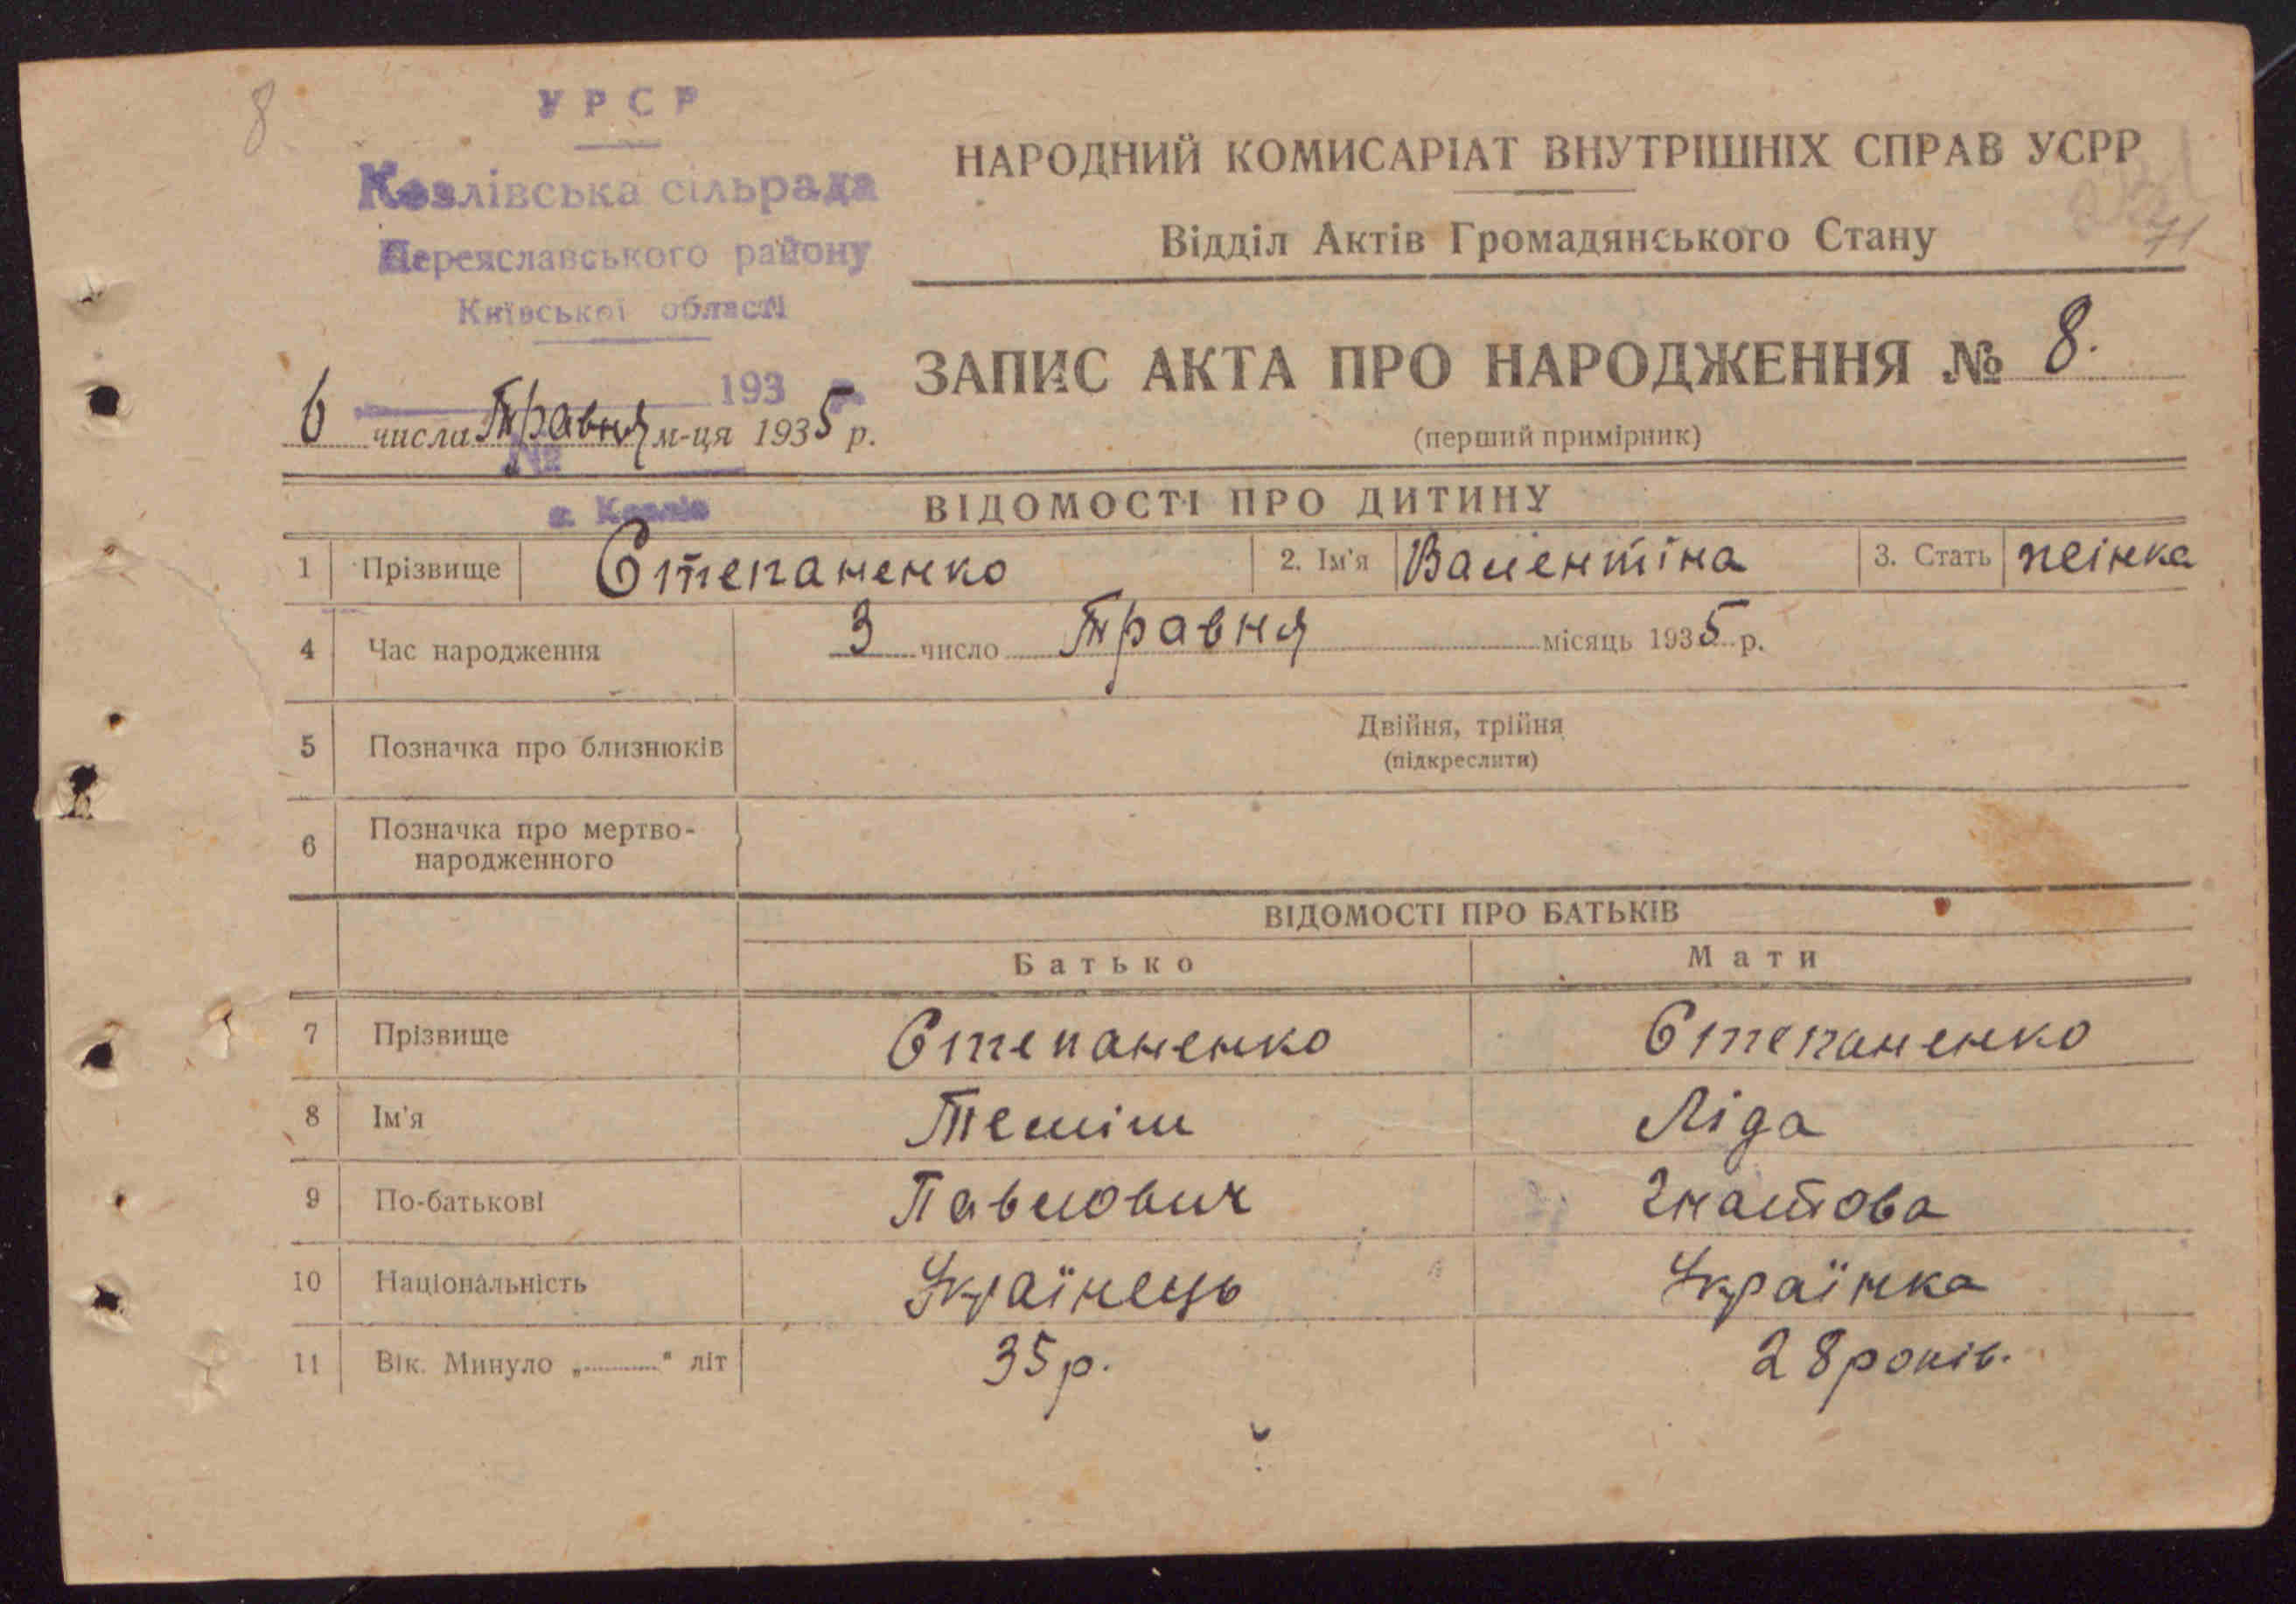 8
УРСР
Козлівська сільрада
Переяславського району
Київської області
193 р.
№
с. Козлів
НАРОДНИЙ КОМИСАРІАТ ВНУТРІШНІХ СПРАВ УСРР
71
Відділ Актів Громадянського Стану
ЗАПИС АКТА ПРО НАРОДЖЕННЯ № 8.
(перший примірник)
6 числа Травня м-ця 1935 р.
ВІДОМОСТІ ПРО ДИТИНУ
1 Прізвище Степаненко 2. Ім'я Валентіна 3. Стать жінка
4 Час народження 3 число Травня місяць 1935 р.
5 Позначка про близнюків Двійня, трійня
(підкреслити)
6 Позначка про мертво-
народженного
ВІДОМОСТІ ПРО БАТЬКІВ
Батько Мати
7 Прізвище Степаненко Степаненко
8 Ім'я Ліда
9 По-батькові Павлович
10 Національність Українець Українка
11 Вік. Минуло „..........“ літ 35 р. 28 років.